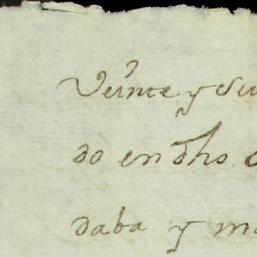 Veinte y
do en dho
daba y